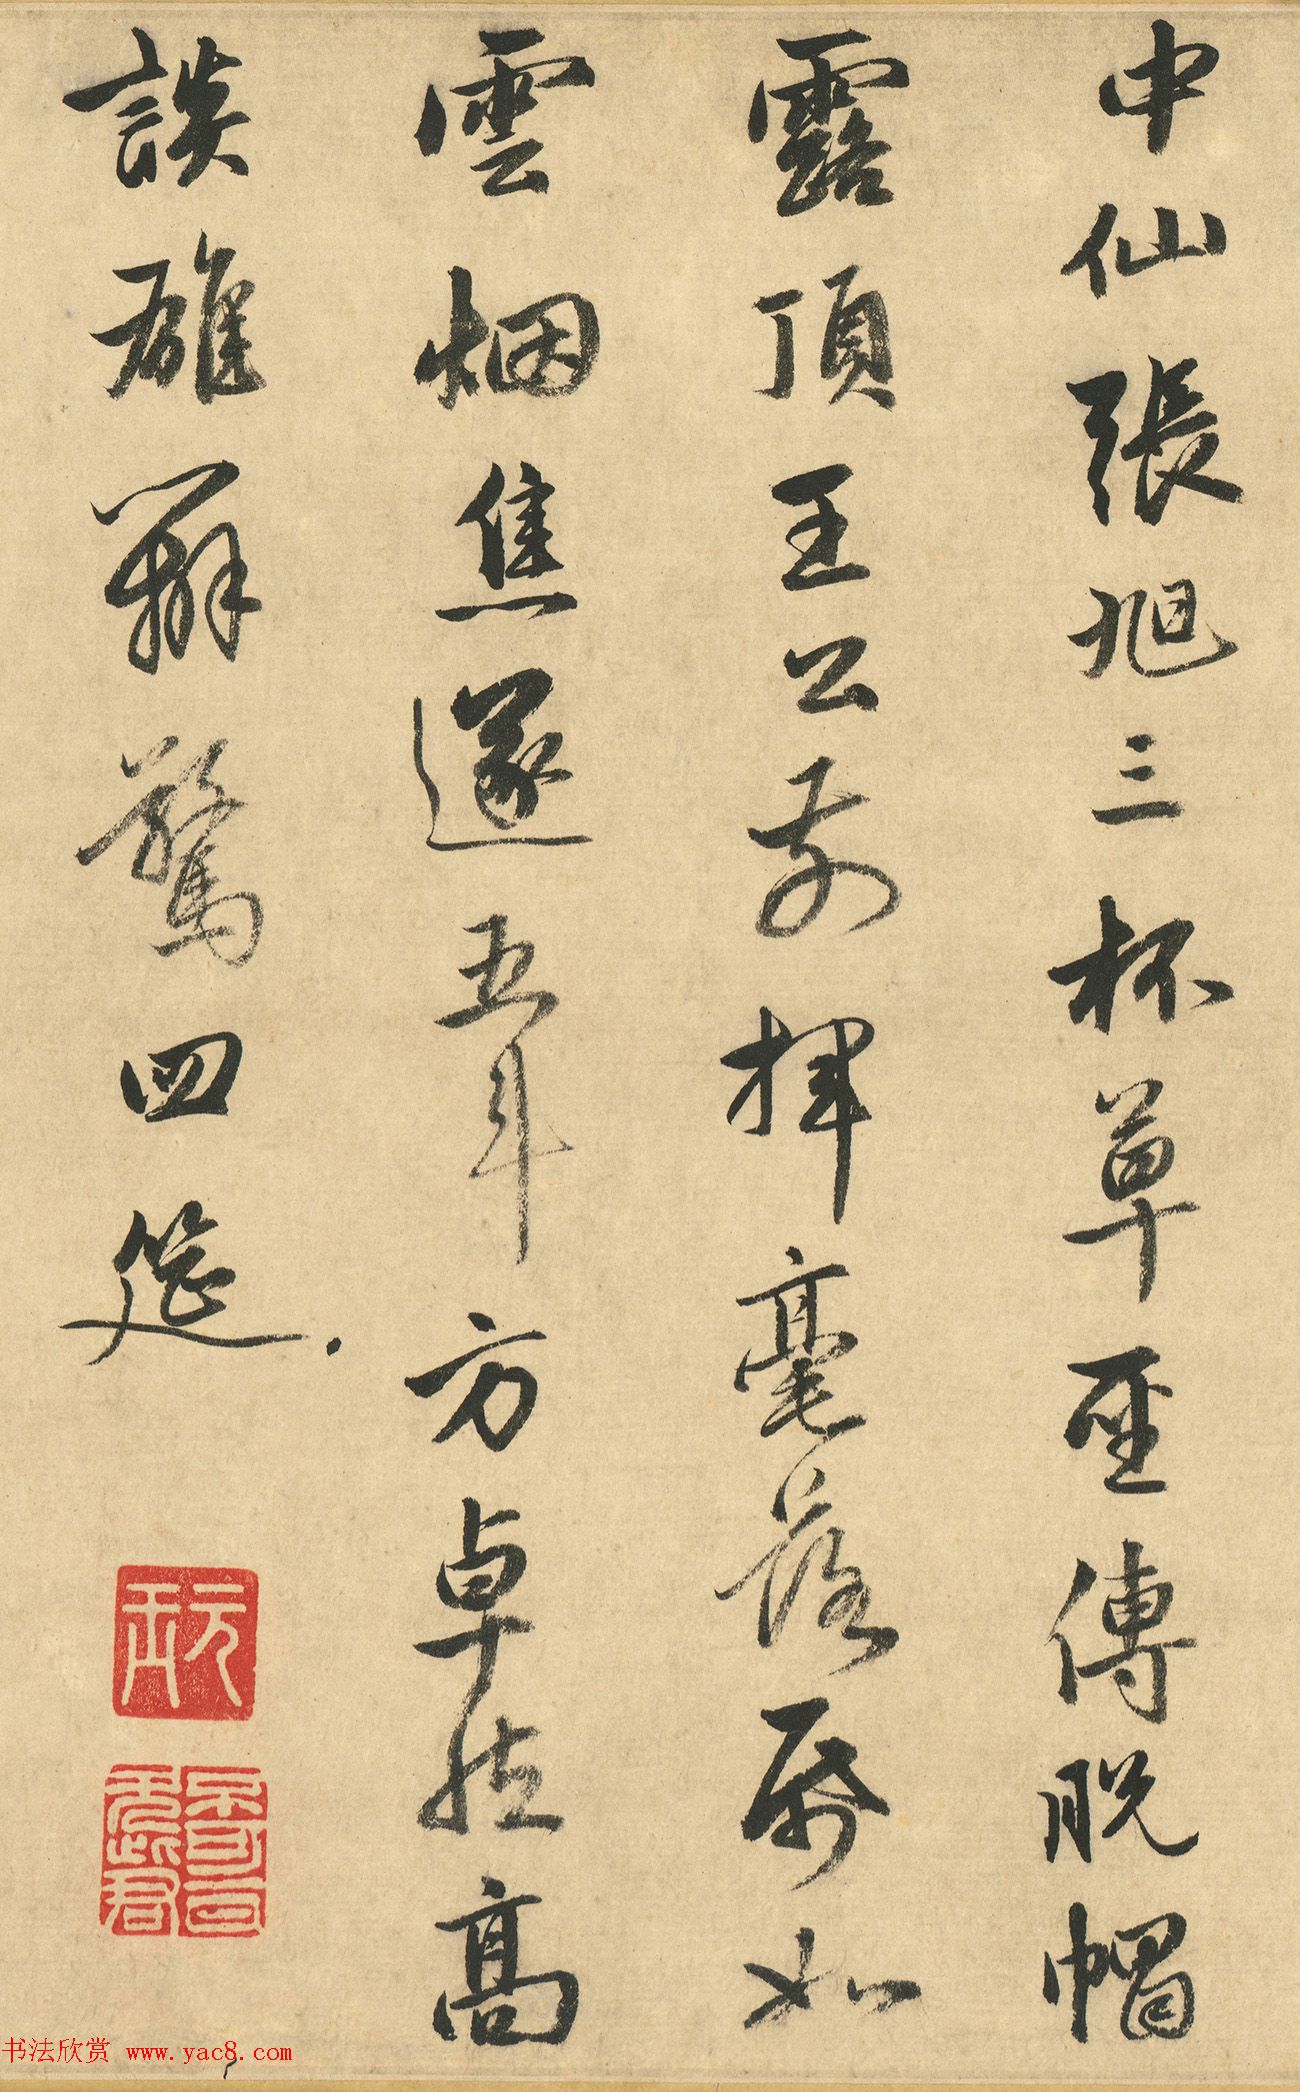 中仙張旭三杯草聖傳脱帽
露頂王公前揮毫落紙如
雲烟焦遂五斗方卓然高
談雄辯驚四筵
书法欣赏 www.yac8.com